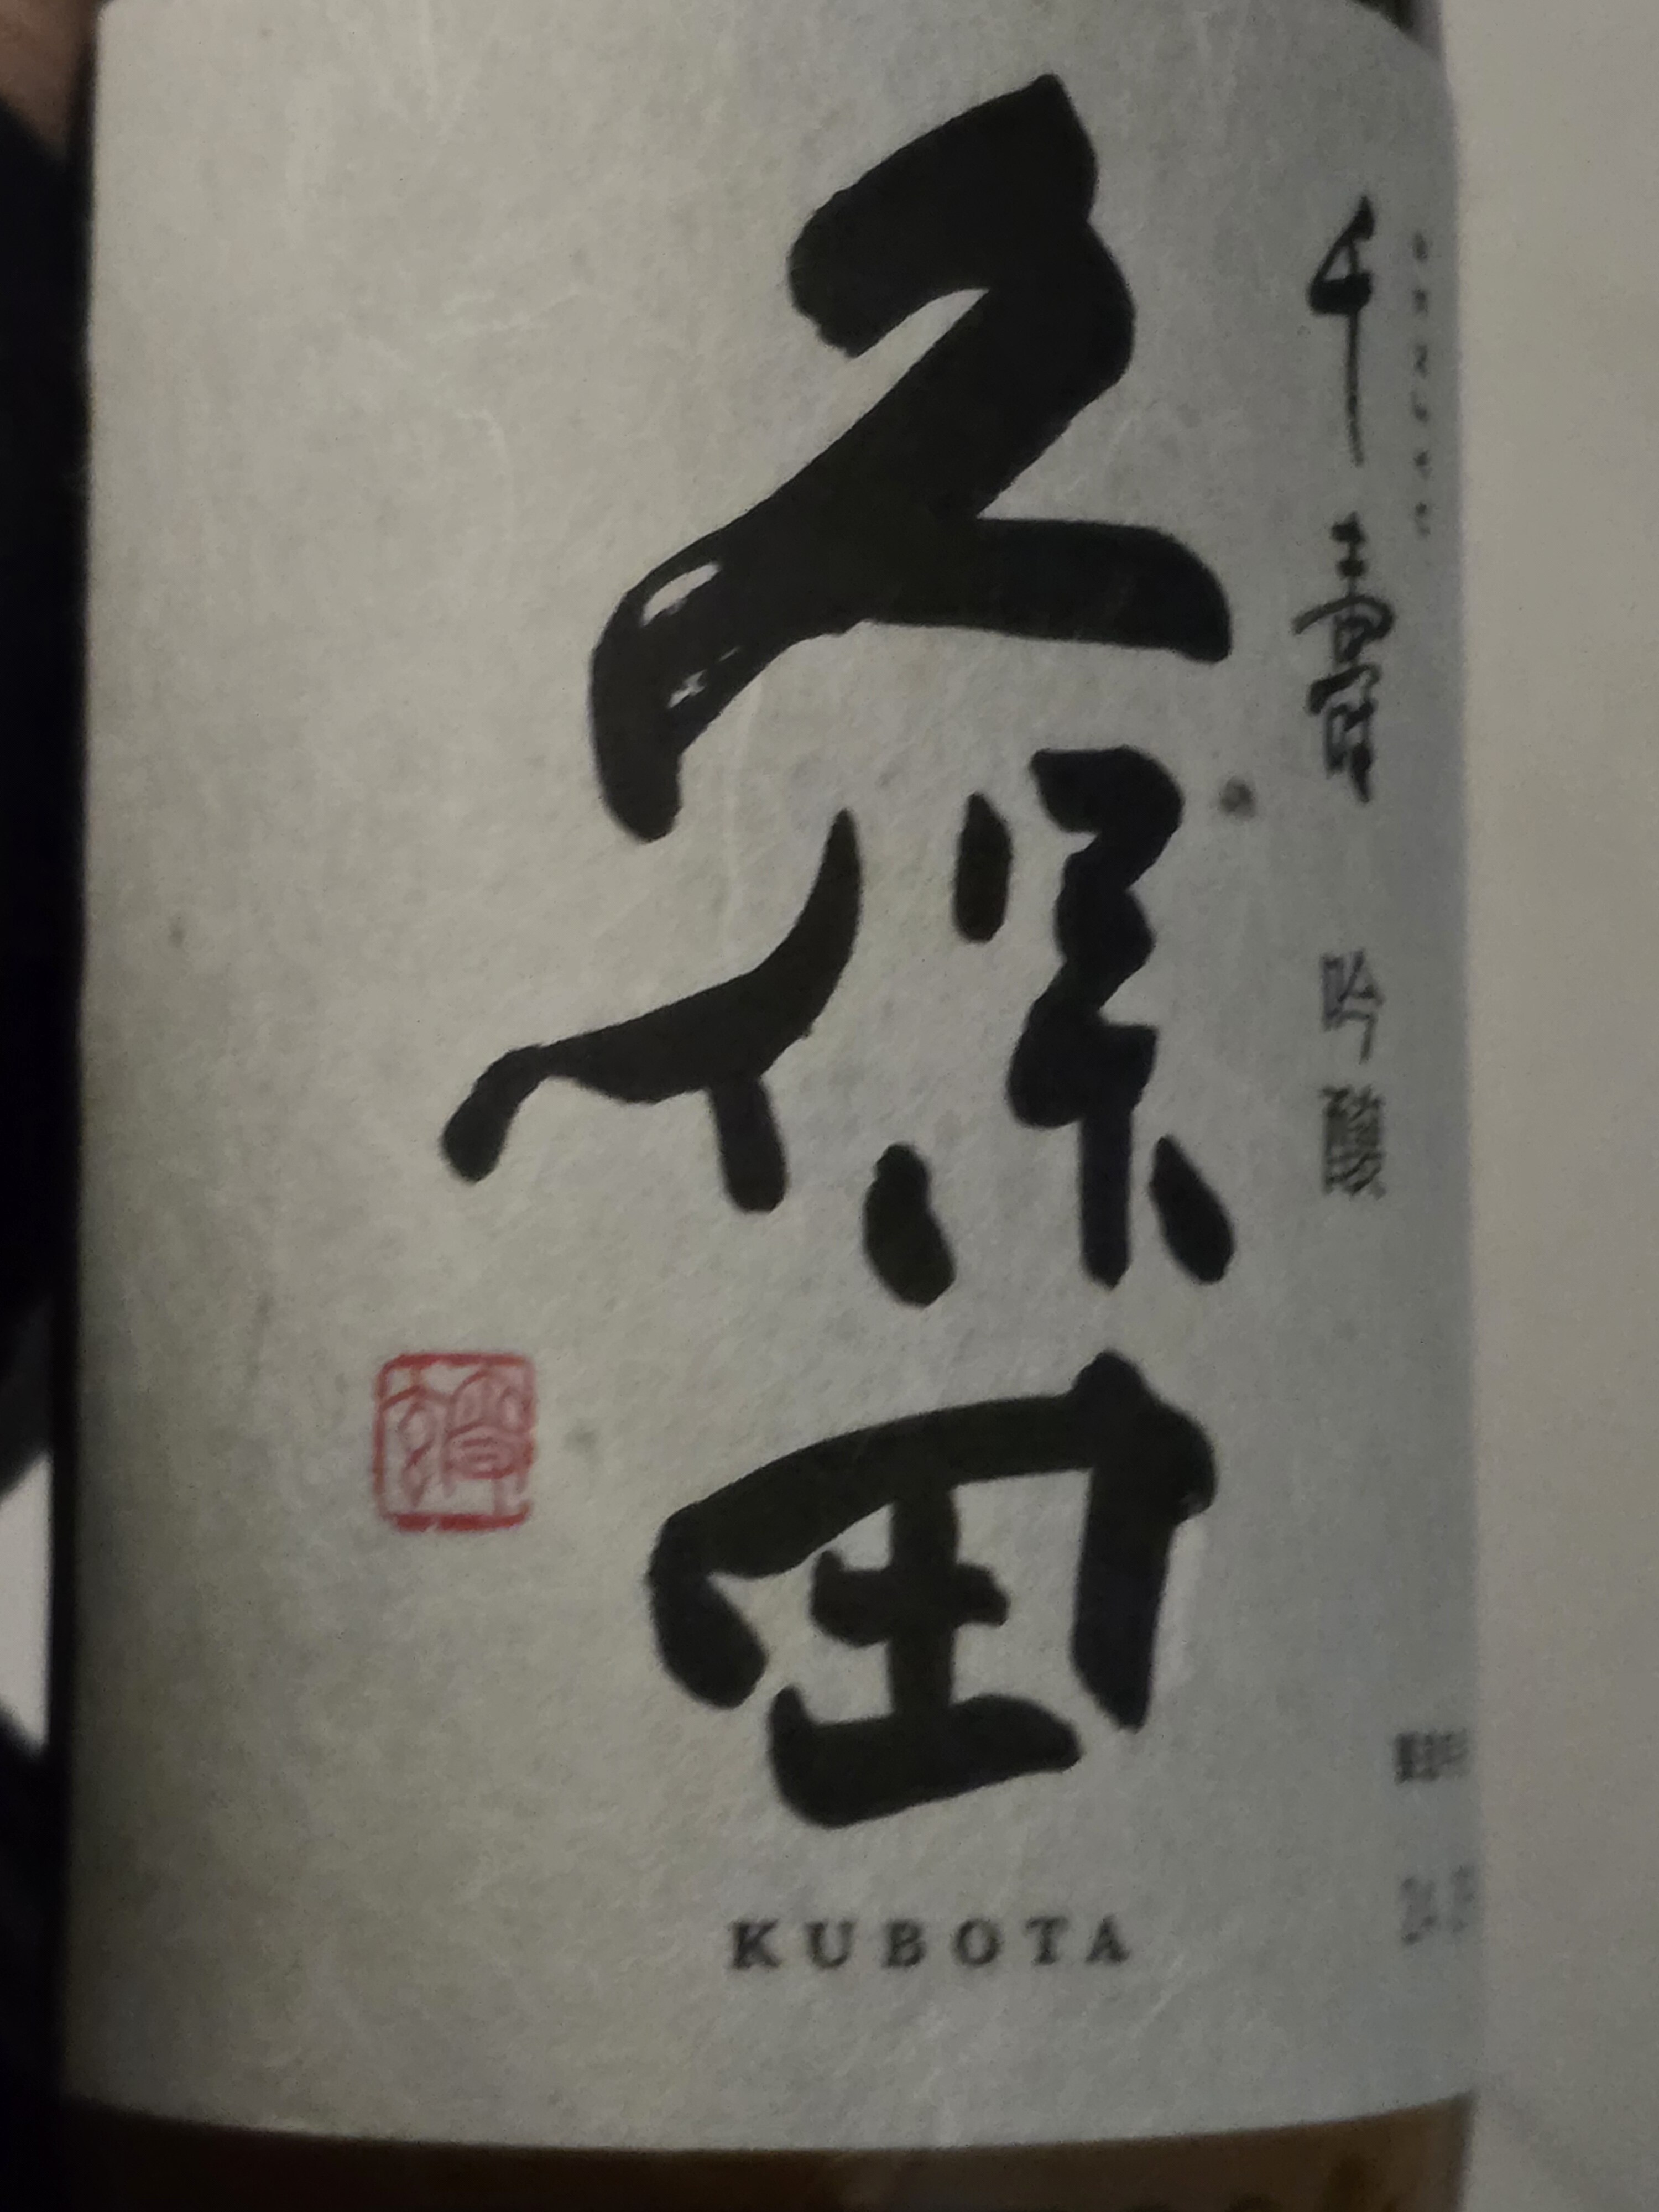 千壽 吟醸
久保田
KUBOTA